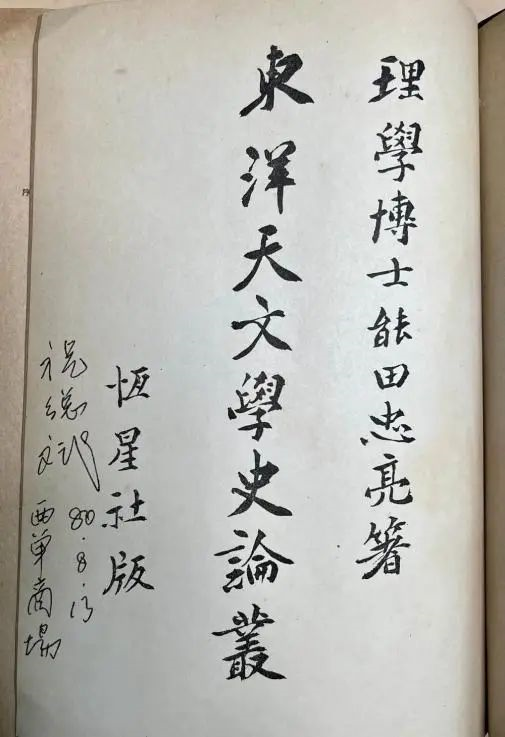 理學博士能田忠亮箸
東洋天文學史論叢
恆星社版
祝总斌
西单商場